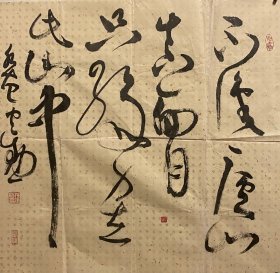 不识庐山
真面目
只缘身在
此山中